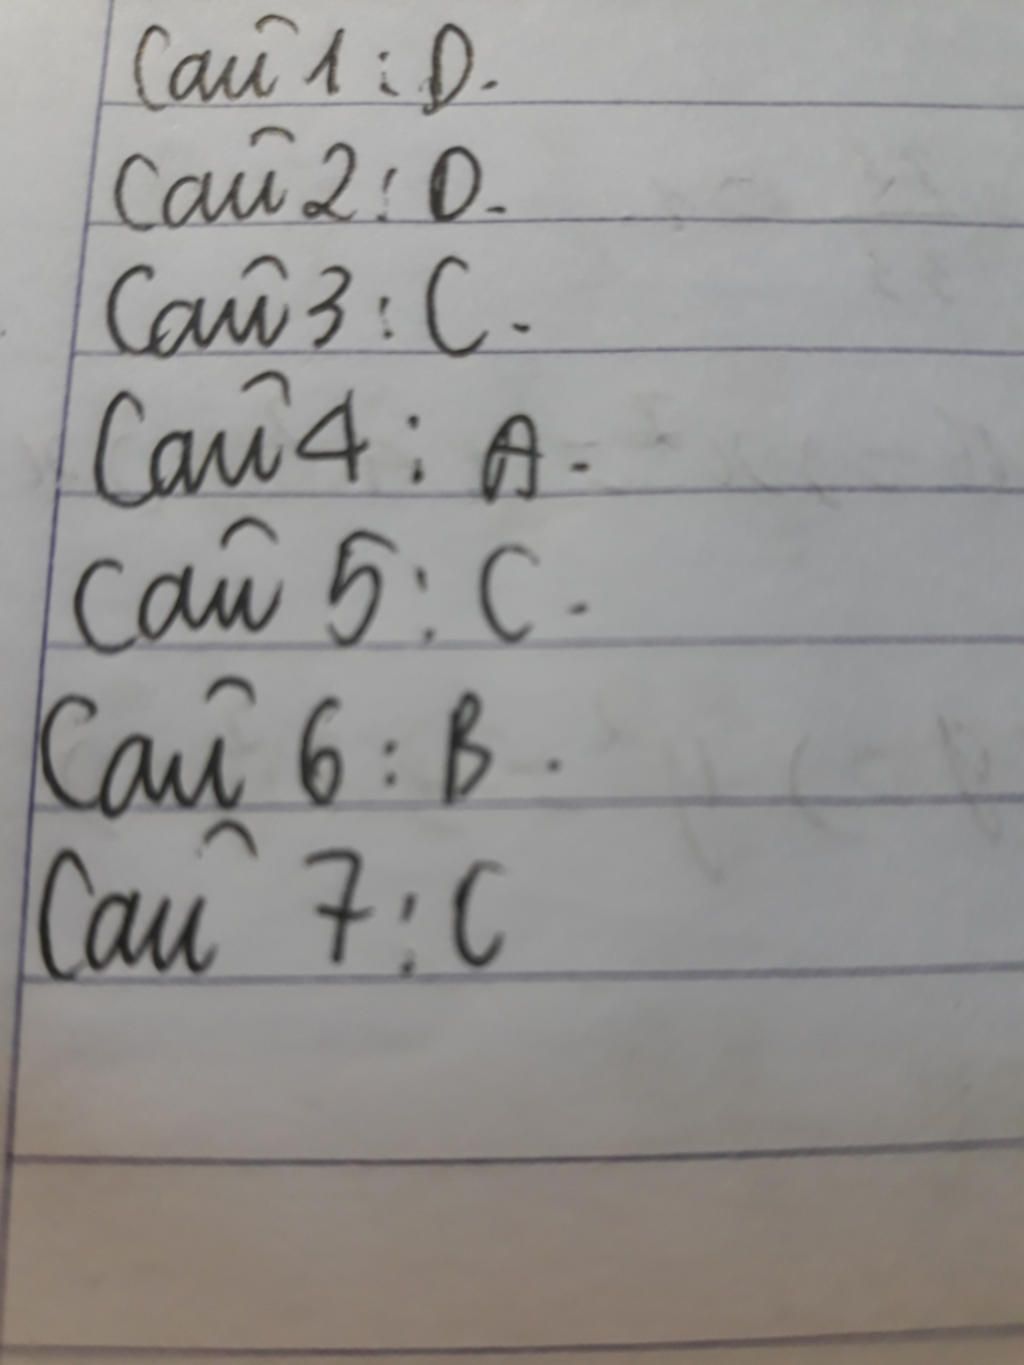 Câu 1: D.
Câu 2: D.
Câu 3: C.
Câu 4: A.
Câu 5: C.
Câu 6: B.
Câu 7: C